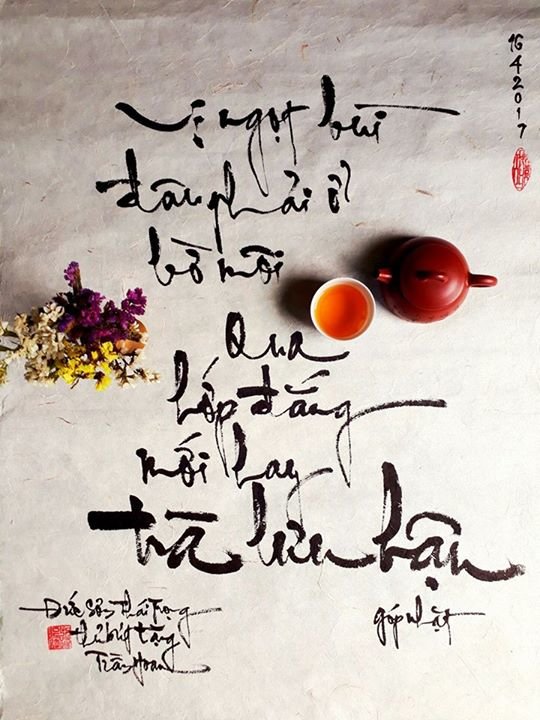 16 4 2017
Vị ngọt bùi
đâu phải ở
bờ môi
Qua
hớp đắng
mới hay
trà lưu hậu
góp nhặt
Đức Sơn Thái Trọng
thủ bút tặng
Trần Hoan